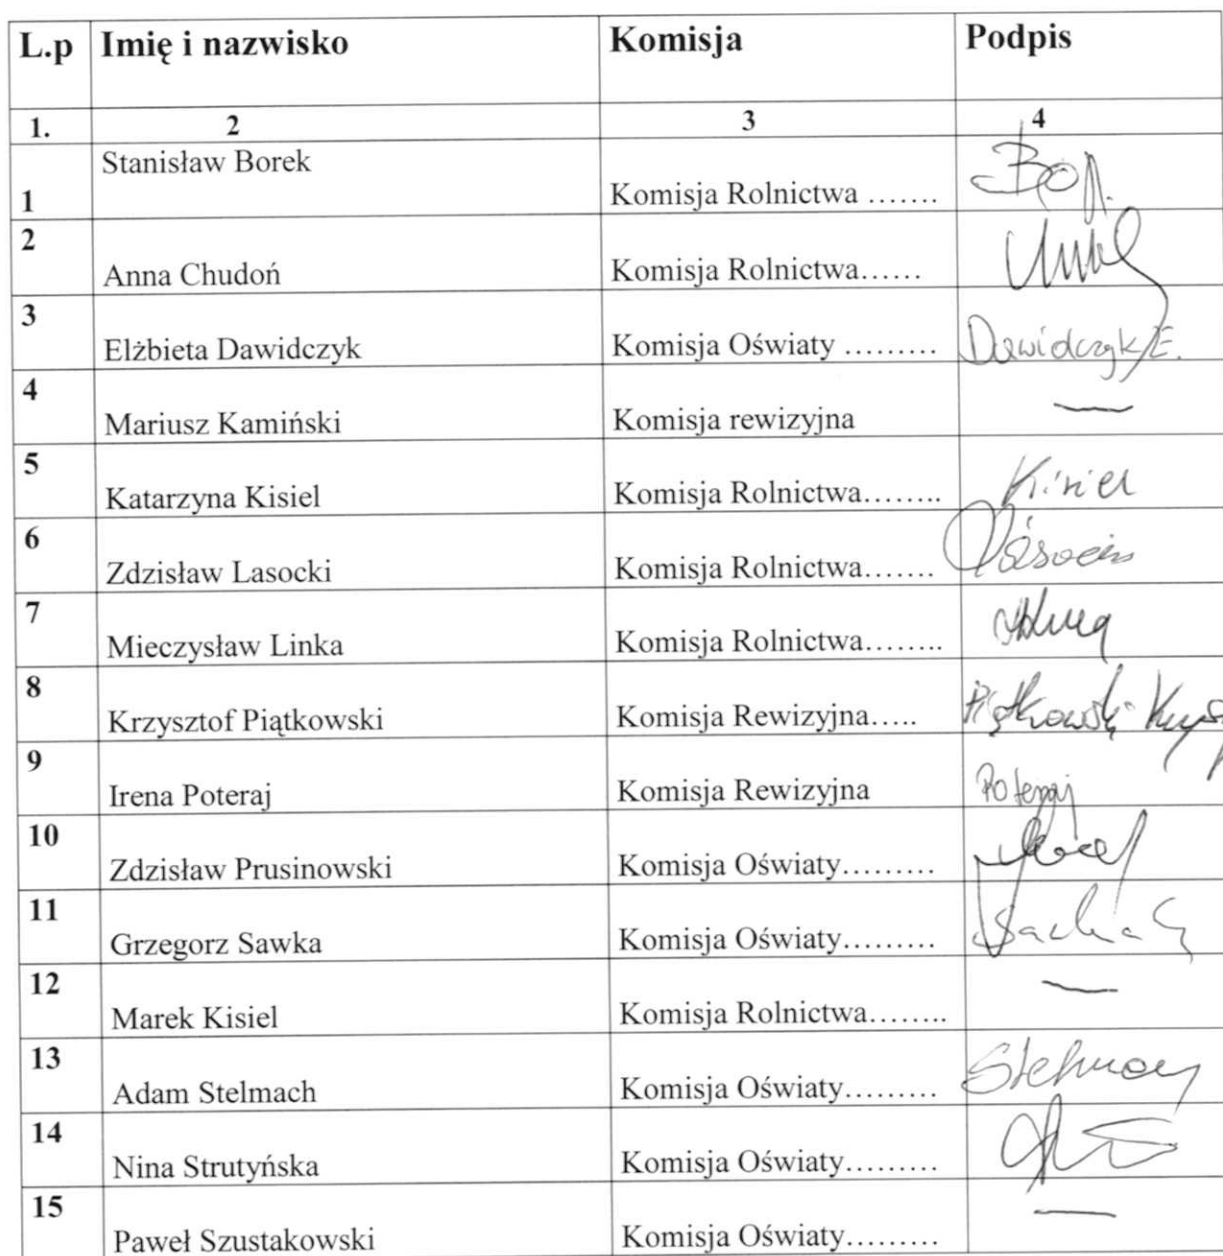 L.p Imię i nazwisko Komisja Podpis
1. 2 3 4
1 Stanisław Borek Komisja Rolnictwa …….
2 Anna Chudoń Komisja Rolnictwa……
3 Elżbieta Dawidczyk Komisja Oświaty ……… Dawidczyk E.
4 Mariusz Kamiński Komisja rewizyjna —
5 Katarzyna Kisiel Komisja Rolnictwa…….. Kisiel
6 Zdzisław Lasocki Komisja Rolnictwa…….
7 Mieczysław Linka Komisja Rolnictwa……..
8 Krzysztof Piątkowski Komisja Rewizyjna….. Piątkowski
9 Irena Poteraj Komisja Rewizyjna Poteraj
10 Zdzisław Prusinowski Komisja Oświaty………
11 Grzegorz Sawka Komisja Oświaty………
12 Marek Kisiel Komisja Rolnictwa…….. —
13 Adam Stelmach Komisja Oświaty……… Stelmach
14 Nina Strutyńska Komisja Oświaty………
15 Paweł Szustakowski Komisja Oświaty……… —